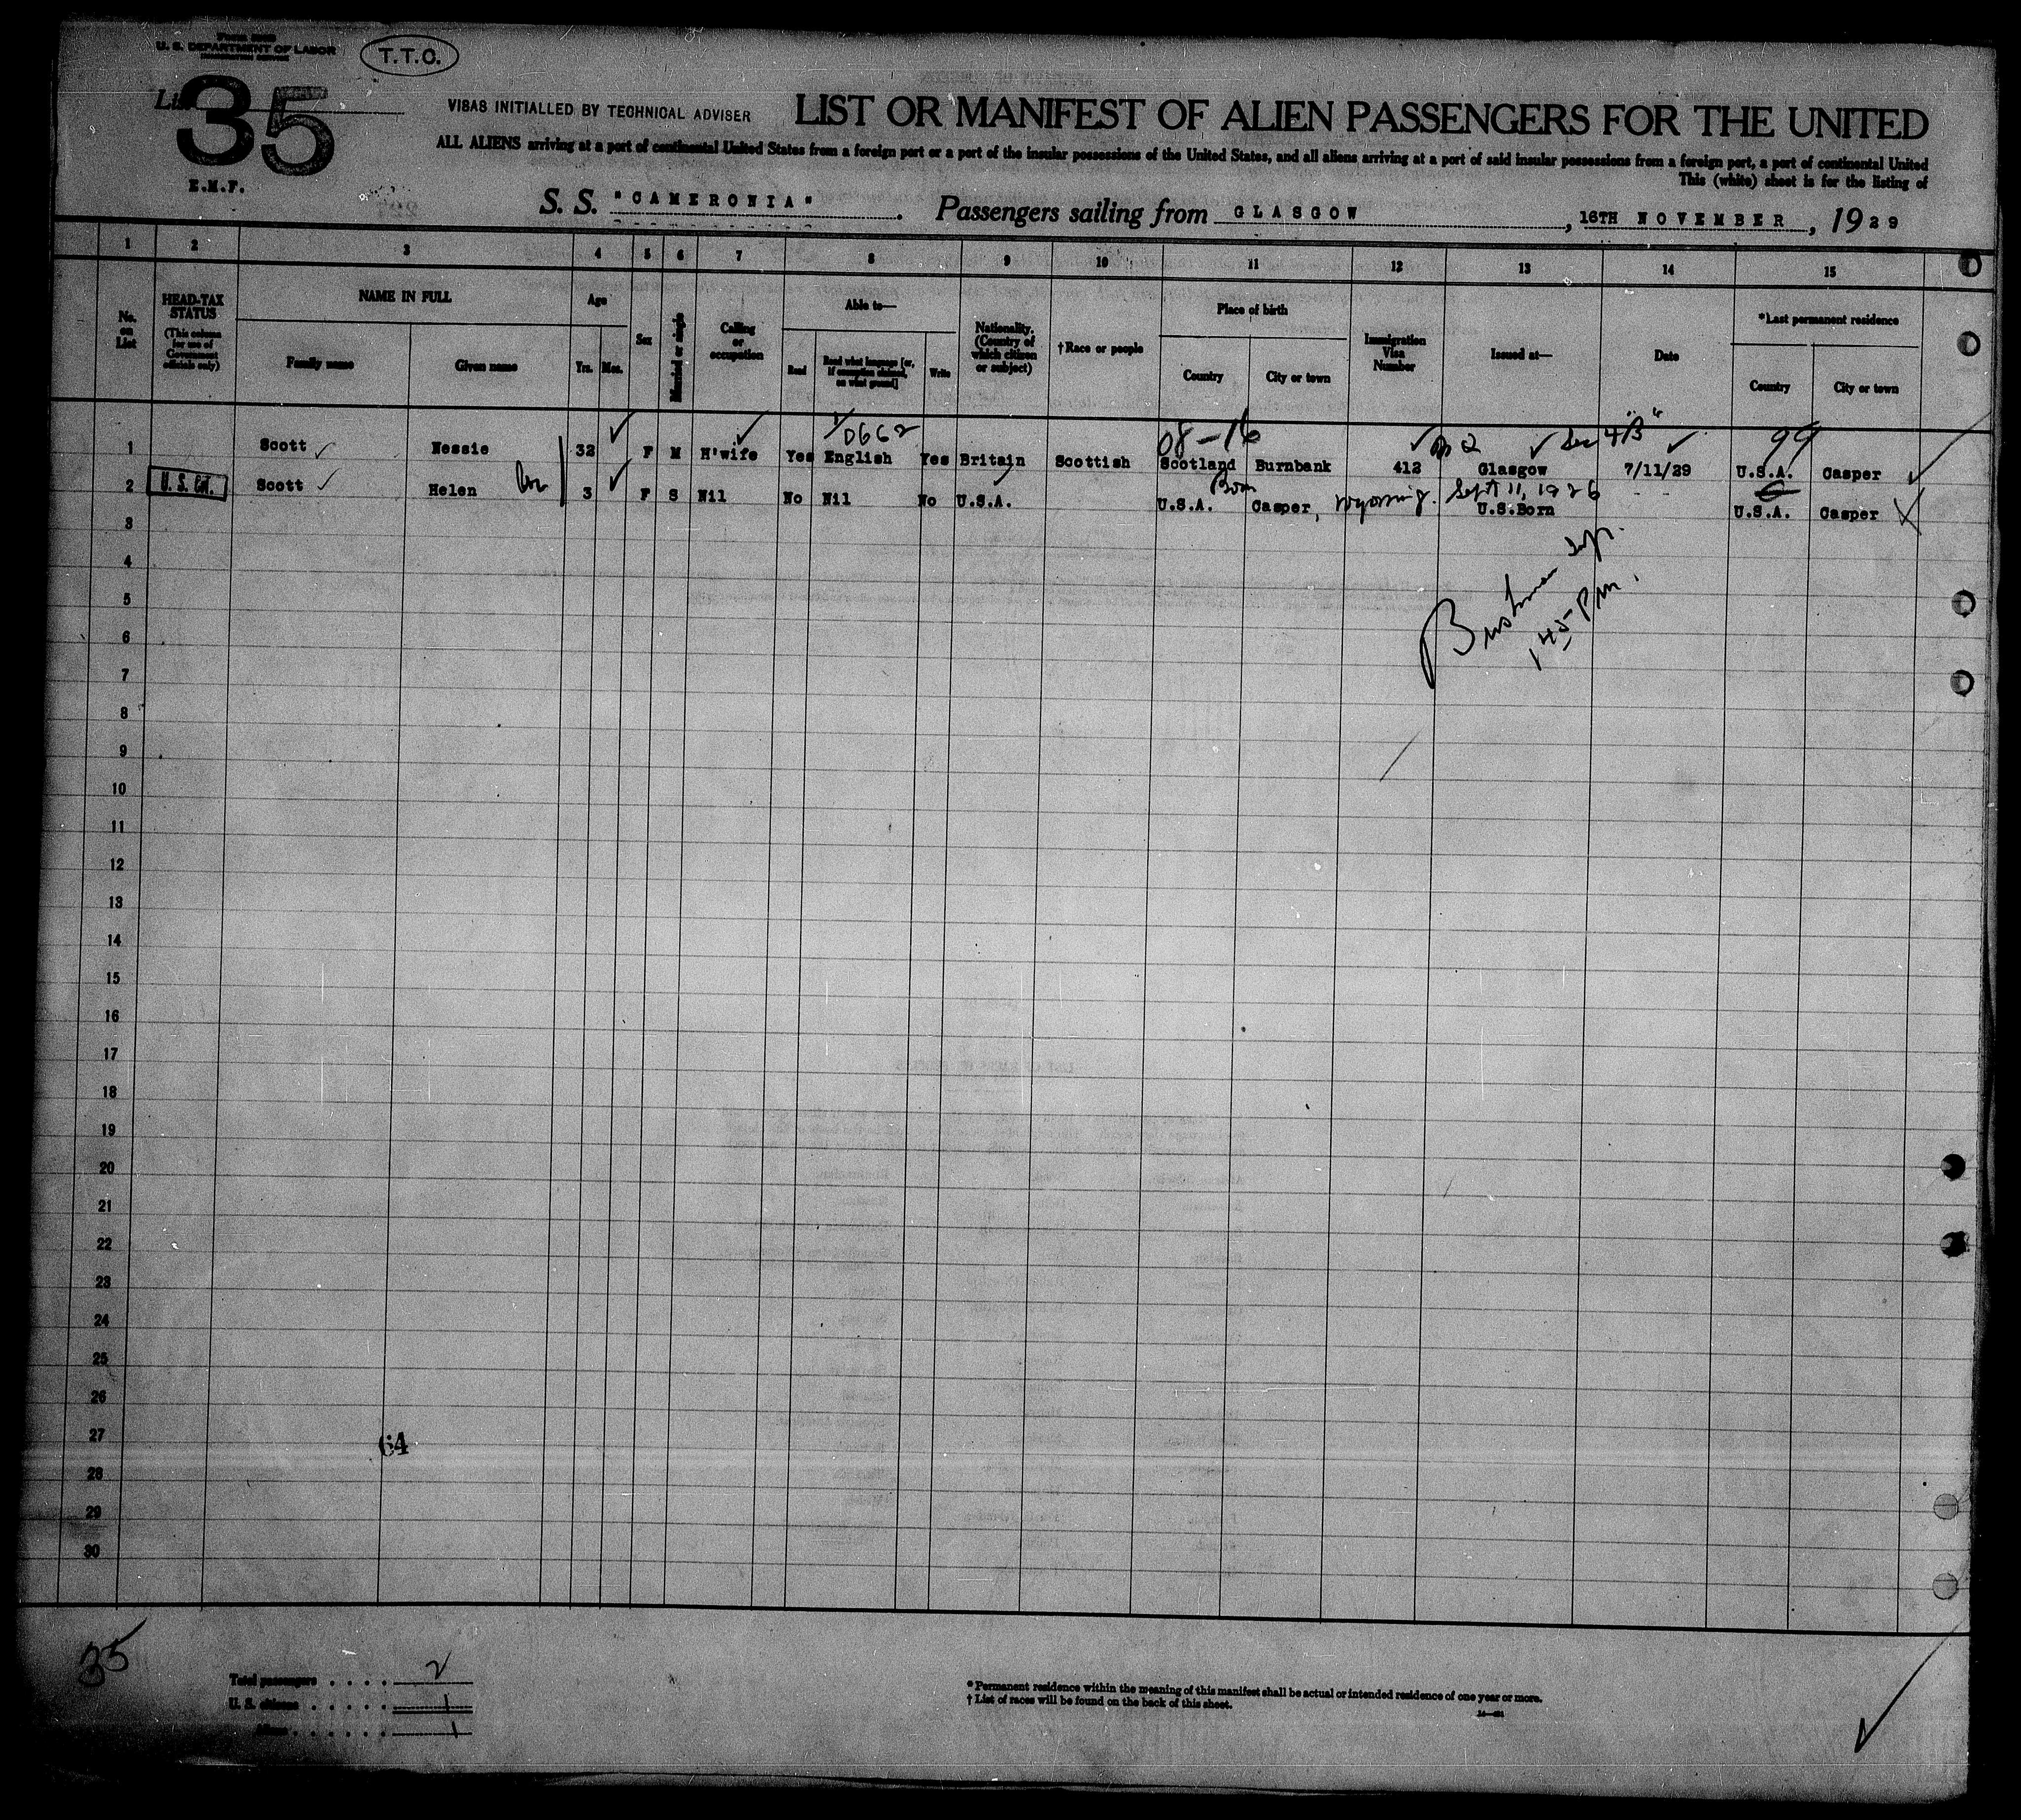 U. S. DEPARTMENT OF LABOR
T.T.O.
List 35
VISAS INITIALLED BY TECHNICAL ADVISER
LIST OR MANIFEST OF ALIEN PASSENGERS FOR THE UNITED
ALL ALIENS arriving at a port of continental United States from a foreign port or a port of the insular possessions of the United States, and all aliens arriving at a port of said insular possessions from a foreign port, a port of continental United
This (white) sheet is for the listing of
S. S. "CAMERONIA". Passengers sailing from GLASGOW, 16TH NOVEMBER, 1929
1 2 3 4 5 6 7 8 9 10 11 12 13 14 15
No. on List
HEAD-TAX STATUS (This column for use of Government officials only)
NAME IN FULL
Family name Given name
Age
Yrs. Mos.
Sex
Married or single
Calling or occupation
Able to—
Read Read what language [or, if exemption claimed, on what ground] Write
Nationality. (Country of which citizen or subject)
†Race or people
Place of birth
Country City or town
Immigration Visa Number
Issued at—
Date
*Last permanent residence
Country City or town
0662 08-16 Sec 4"B" 99
1 Scott Nessie 32 F M H'wife Yes English Yes Britain Scottish Scotland Burnbank 412 Glasgow 7/11/29 U.S.A. Casper
Born Wyoming. Sept 11, 1926
2 U. S. Cit. Scott Helen 3 F S Nil No Nil No U.S.A. U.S.A. Casper, U.S.Born - - U.S.A. Casper
3
4
5
6
7
1 45 Pm.
8
9
10
11
12
13
14
15
16
17
18
19
20
21
22
23
24
25
26
27
64
28
29
30
35
Total passengers . . . . 2
U. S. citizens . . . . . 1
Aliens . . . . . . 1
*Permanent residence within the meaning of this manifest shall be actual or intended residence of one year or more.
† List of races will be found on the back of this sheet.